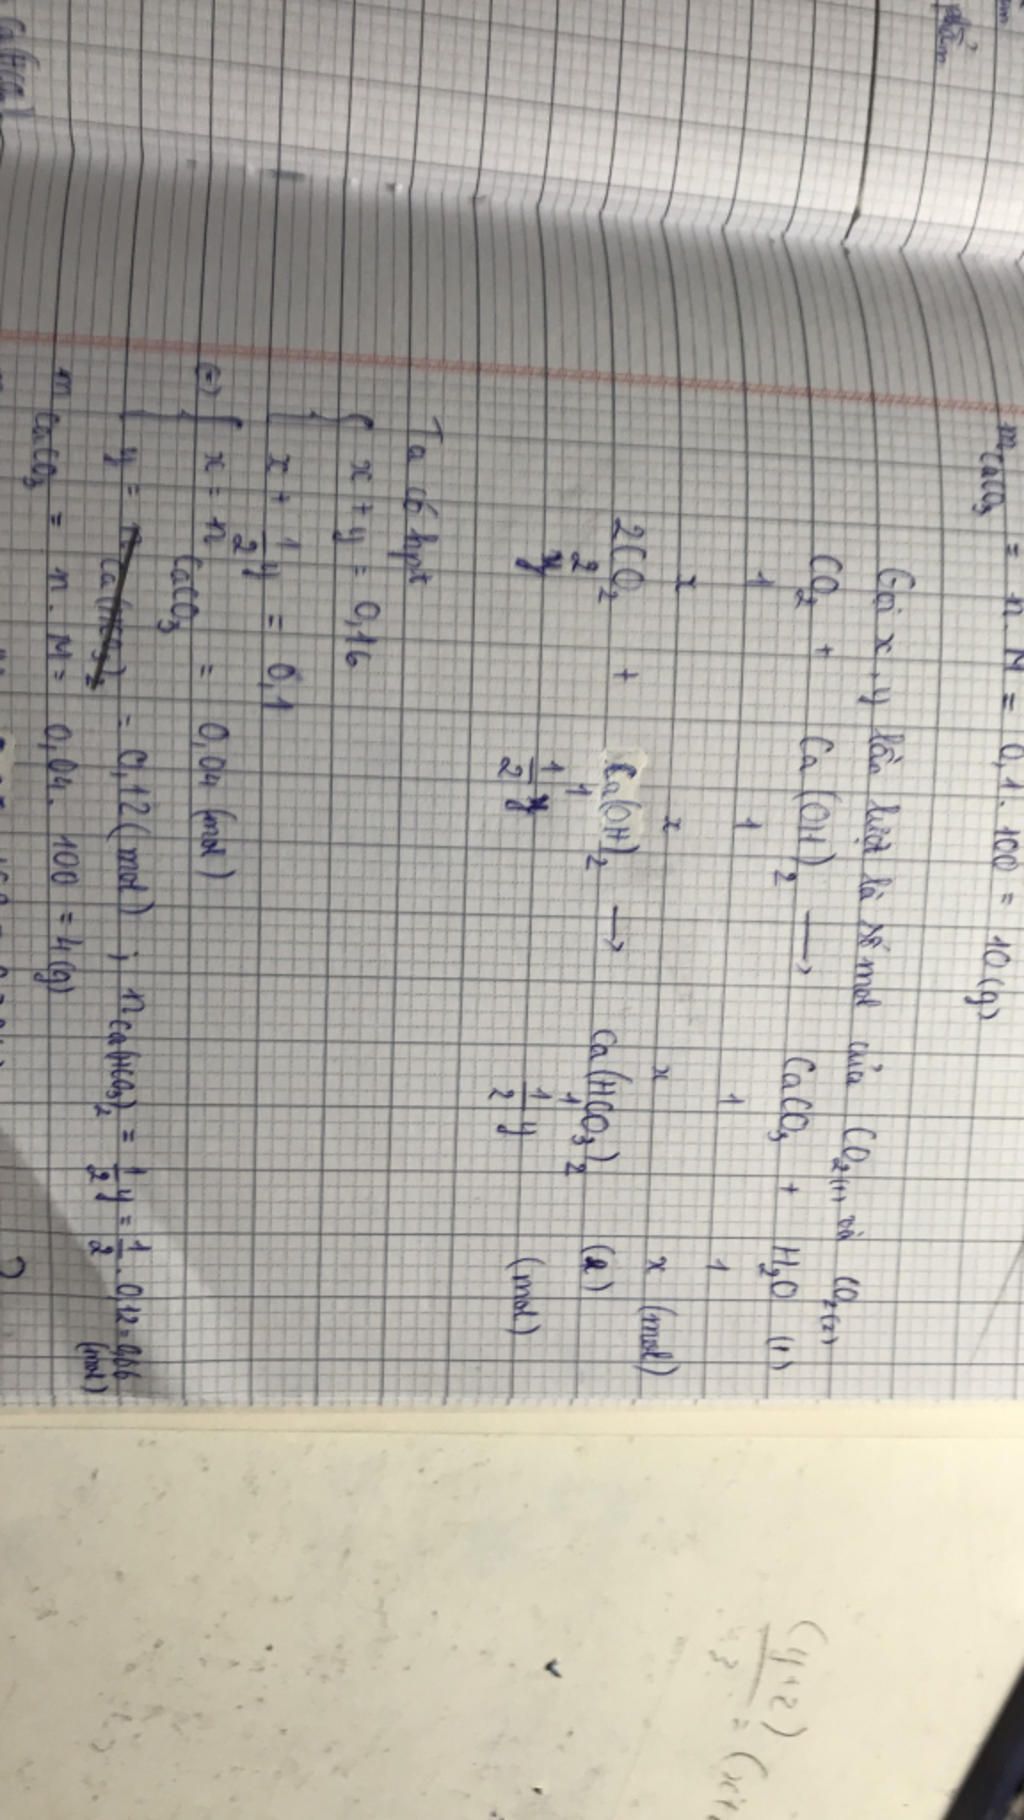 m CaCO3 = n . M = 0,1 . 100 = 10 (g)
Gọi x, y lần lượt là số mol của CO2(1) và CO2(2)
CO2 + Ca(OH)2 → CaCO3 + H2O (1)
1 1 1 1
x x x x (mol)
2CO2 + Ca(OH)2 → Ca(HCO3)2 (2)
2 1 1
y 1/2 y 1/2 y (mol)
Ta có hpt
{ x + y = 0,16
{ x + 1/2 y = 0,1
(=) { x = n CaCO3 = 0,04 (mol)
{ y = n Ca(HCO3)2 = 0,12 (mol) ; n Ca(HCO3)2 = 1/2 y = 1/2 . 0,12 = 0,06 (mol)
m CaCO3 = n . M = 0,04 . 100 = 4 (g)
phẩm